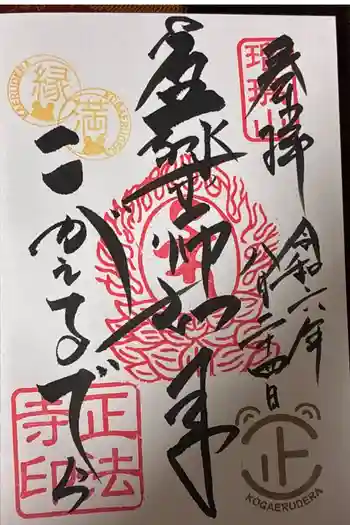 奉拝
瑠璃山
令和六年
八月二十四日
薬師如来
こがえるでら
縁
満
KOGAERUDERA
正法
寺印
KOGAERUDERA